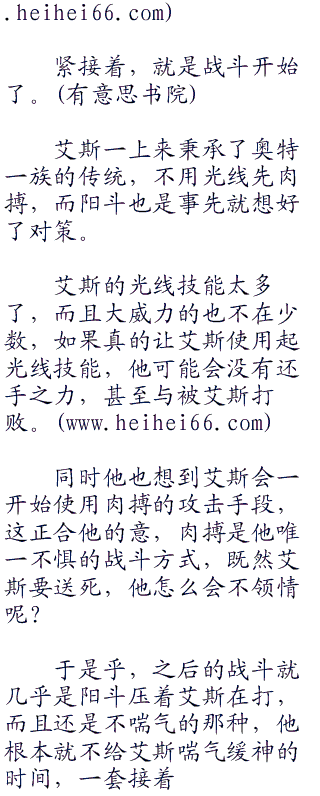 .heihei66.com)
紧接着，就是战斗开始
了。(有意思书院)
艾斯一上来秉承了奥特
一族的传统，不用光线先肉
搏，而阳斗也是事先就想好
了对策。
艾斯的光线技能太多
了，而且大威力的也不在少
数，如果真的让艾斯使用起
光线技能，他可能会没有还
手之力，甚至与被艾斯打
败。(www.heihei66.com)
同时他也想到艾斯会一
开始使用肉搏的攻击手段，
这正合他的意，肉搏是他唯
一不惧的战斗方式，既然艾
斯要送死，他怎么会不领情
呢？
于是乎，之后的战斗就
几乎是阳斗压着艾斯在打，
而且还是不喘气的那种，他
根本就不给艾斯喘气缓神的
时间，一套接着